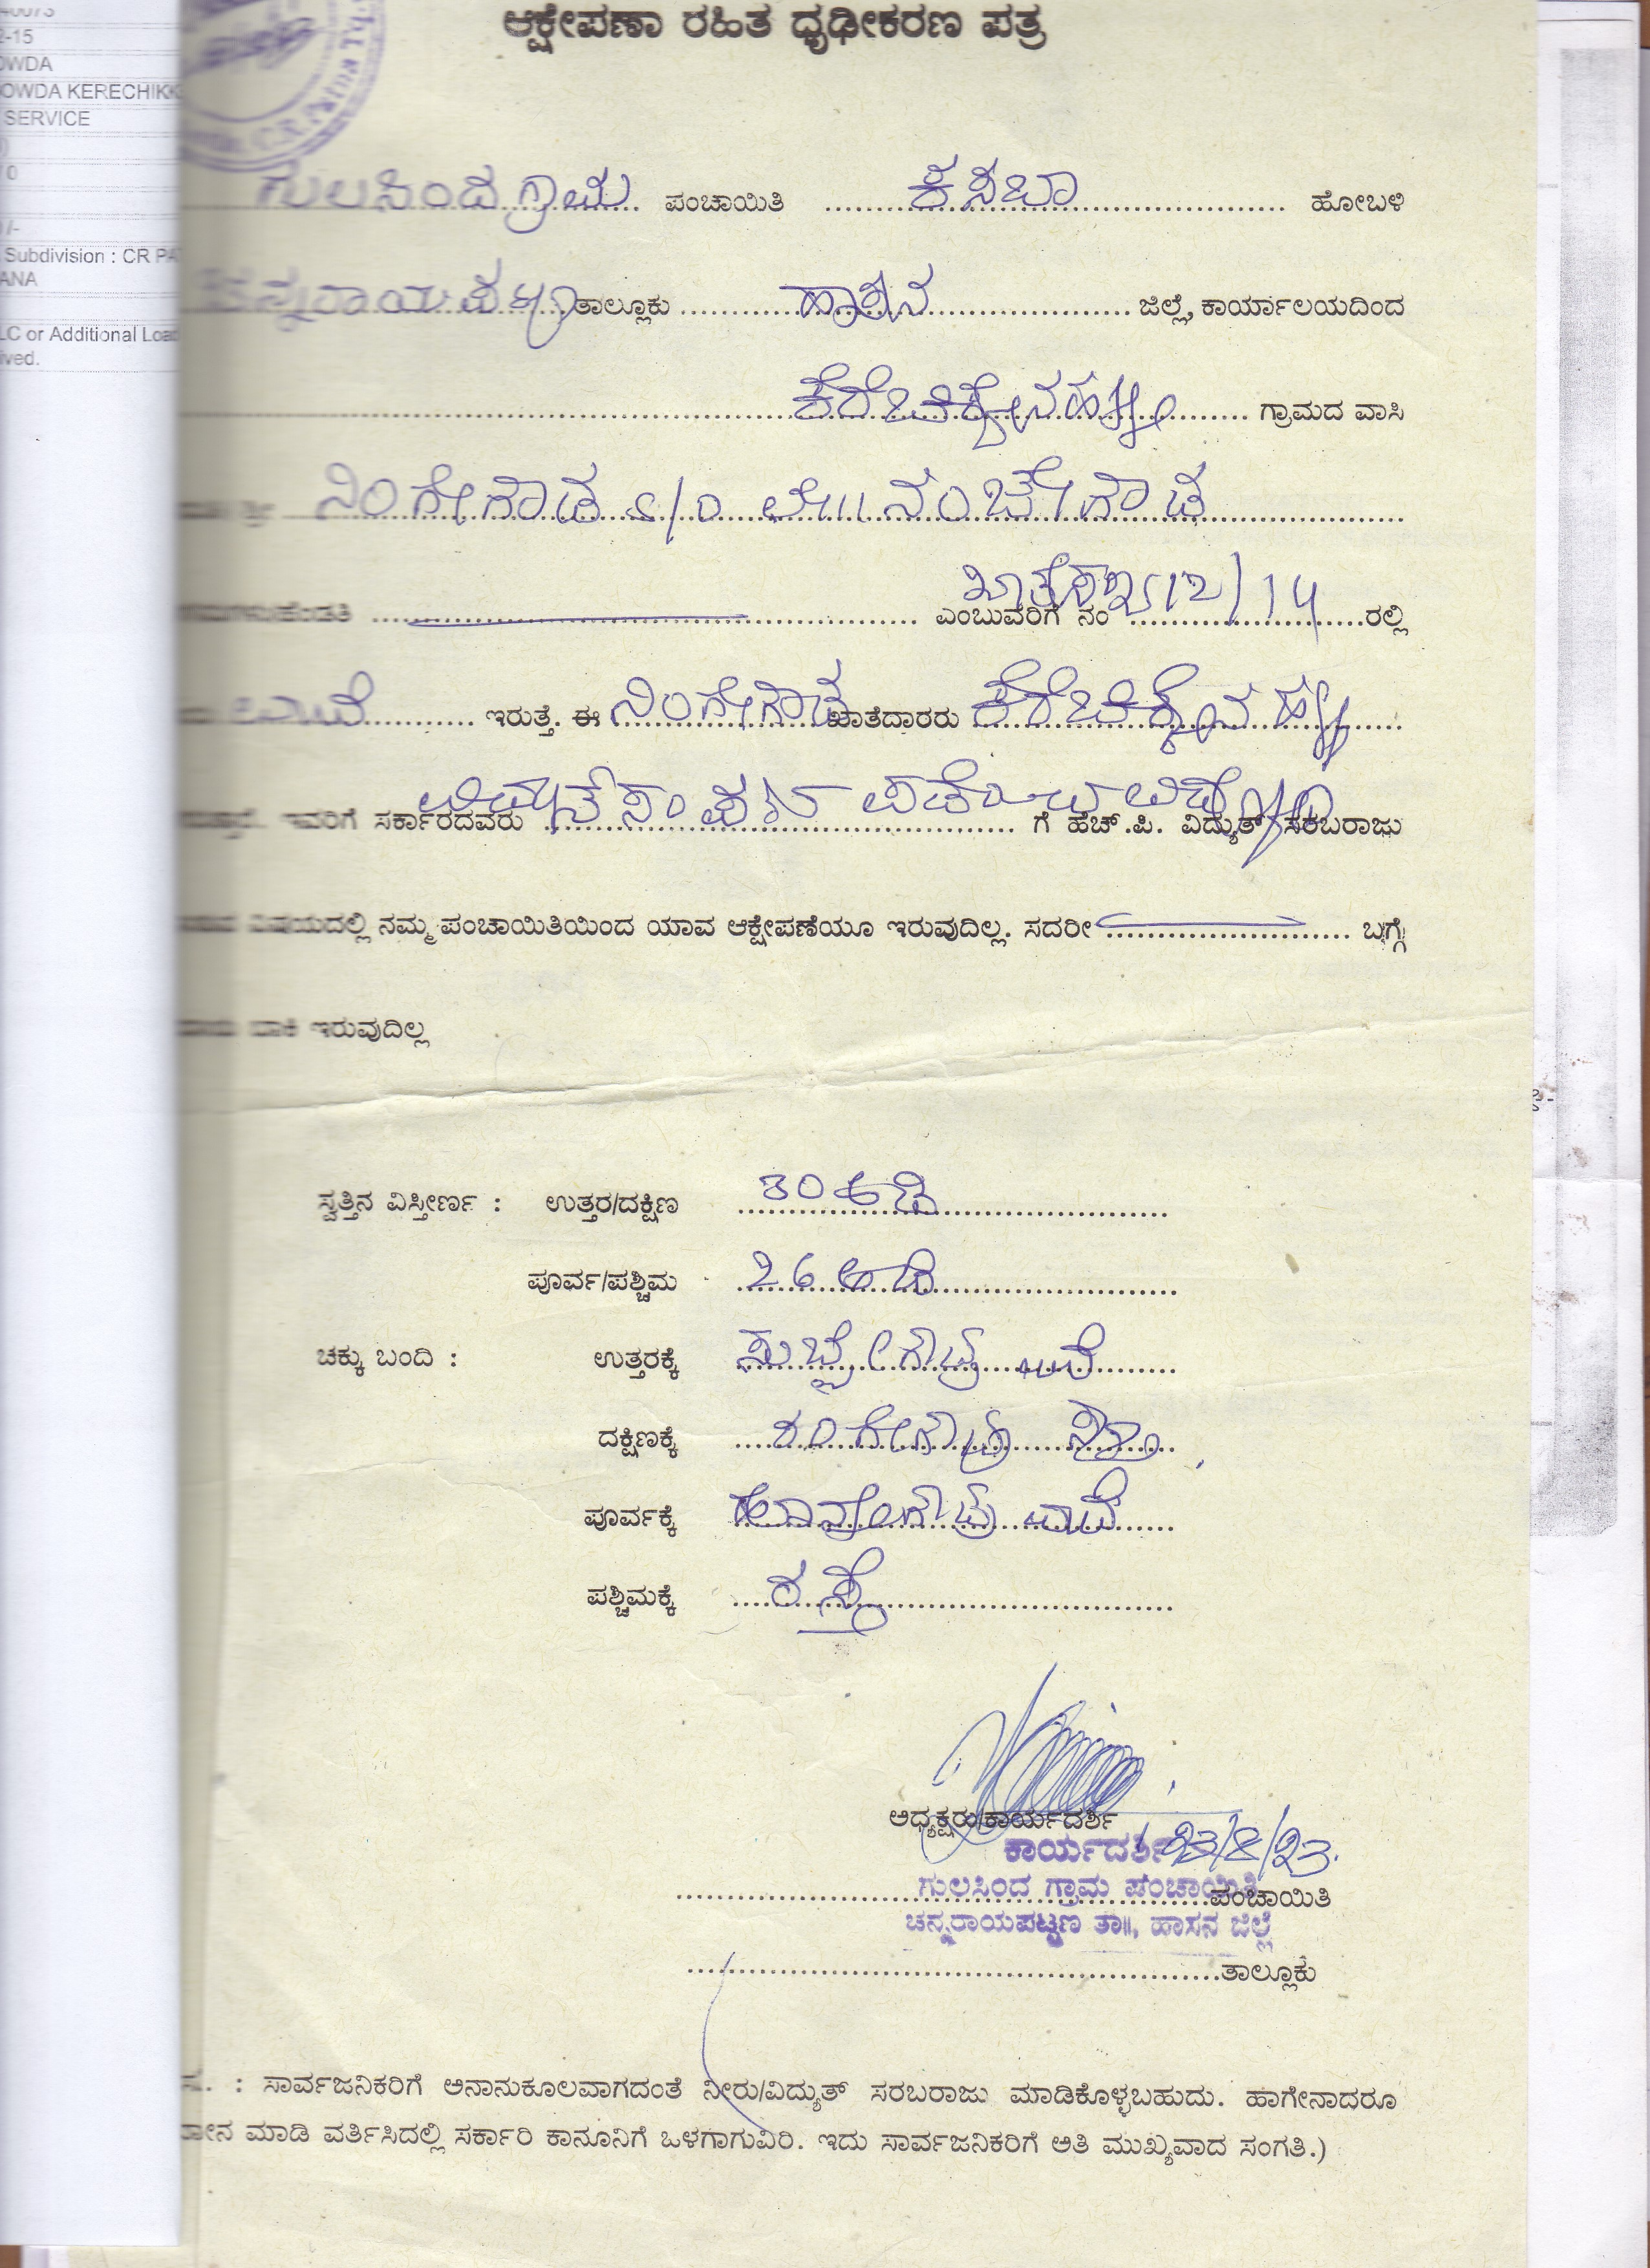 40073
2-15
OWDA
OWDA KERECHIKK
SERVICE
0
/-
Subdivision : CR PA
ANA
LC or Additional Load
ived.
ಆಕ್ಷೇಪಣಾ ರಹಿತ ಧೃಢೀಕರಣ ಪತ್ರ
ಗುಲಸಿಂದ ಗ್ರಾಮ ಪಂಚಾಯಿತಿ ಕಸಬಾ ಹೋಬಳಿ
ಚನ್ನರಾಯಪಟ್ಟಣ ತಾಲ್ಲೂಕು ಹಾಸನ ಜಿಲ್ಲೆ, ಕಾರ್ಯಾಲಯದಿಂದ
ಕೆರೇಚಿಕ್ಕೇನಹಳ್ಳಿ ಗ್ರಾಮದ ವಾಸಿ
ನಿಂಗೇಗೌಡ S/O ಲೇ||| ನಂಜೇಗೌಡ
ಎಂಬುವರಿಗೆ ನಂ 12/14 ರಲ್ಲಿ
ಮನೆ ಇರುತ್ತೆ. ಈ ನಿಂಗೇಗೌಡ ಖಾತೆದಾರರು ಕೆರೇಚಿಕ್ಕೇನಹಳ್ಳಿ
ಇವರಿಗೆ ಸರ್ಕಾರದವರು ವಿದ್ಯುತ್ ಸಂಪರ್ಕ ಪಡೆಯಲು ಗೆ ಹೆಚ್.ಪಿ. ವಿದ್ಯುತ್ ಸರಬರಾಜು
ವಿಷಯದಲ್ಲಿ ನಮ್ಮ ಪಂಚಾಯಿತಿಯಿಂದ ಯಾವ ಆಕ್ಷೇಪಣೆಯೂ ಇರುವುದಿಲ್ಲ. ಸದರೀ ಬಗ್ಗೆ
ಬಾಕಿ ಇರುವುದಿಲ್ಲ
ಸ್ವತ್ತಿನ ವಿಸ್ತೀರ್ಣ : ಉತ್ತರ/ದಕ್ಷಿಣ 30 ಅಡಿ
ಪೂರ್ವ/ಪಶ್ಚಿಮ 26 ಅಡಿ
ಚಕ್ಕು ಬಂದಿ : ಉತ್ತರಕ್ಕೆ ಸುಬ್ಬೇಗೌಡ್ರ ಮನೆ
ದಕ್ಷಿಣಕ್ಕೆ ರಂಗೇಗೌಡ್ರ
ಪೂರ್ವಕ್ಕೆ ಮನೆ
ಪಶ್ಚಿಮಕ್ಕೆ ರಸ್ತೆ
ಅಧ್ಯಕ್ಷರು/ಕಾರ್ಯದರ್ಶಿ
ಕಾರ್ಯದರ್ಶಿ 23/8/23
ಗುಲಸಿಂದ ಗ್ರಾಮ ಪಂಚಾಯಿತಿ ಪಂಚಾಯಿತಿ
ಚನ್ನರಾಯಪಟ್ಟಣ ತಾ||, ಹಾಸನ ಜಿಲ್ಲೆ
ತಾಲ್ಲೂಕು
: ಸಾರ್ವಜನಿಕರಿಗೆ ಅನಾನುಕೂಲವಾಗದಂತೆ ನೀರು/ವಿದ್ಯುತ್ ಸರಬರಾಜು ಮಾಡಿಕೊಳ್ಳಬಹುದು. ಹಾಗೇನಾದರೂ
ಮಾಡಿ ವರ್ತಿಸಿದಲ್ಲಿ ಸರ್ಕಾರಿ ಕಾನೂನಿಗೆ ಒಳಗಾಗುವಿರಿ. ಇದು ಸಾರ್ವಜನಿಕರಿಗೆ ಅತಿ ಮುಖ್ಯವಾದ ಸಂಗತಿ.)